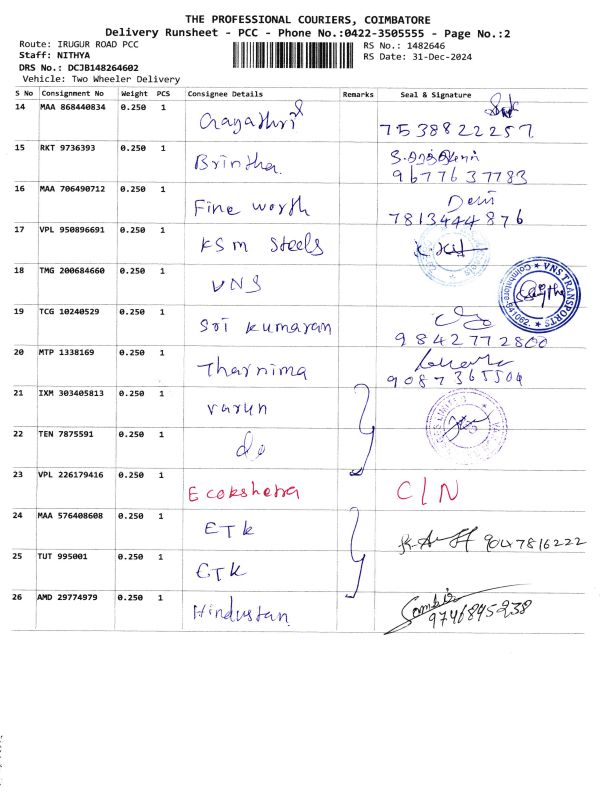 THE PROFESSIONAL COURIERS, COIMBATORE
Delivery Runsheet - PCC - Phone No.:0422-3505555 - Page No.:2
Route: IRUGUR ROAD PCC RS No.: 1482646
Staff: NITHYA RS Date: 31-Dec-2024
DRS No.: DCJB148264602
Vehicle: Two Wheeler Delivery
S No Consignment No Weight PCS Consignee Details Remarks Seal & Signature
14 MAA 868440834 0.250 1 Gayathri 7538822257
15 RKT 9736393 0.250 1 Brintha. 9677637783
16 MAA 706490712 0.250 1 Fine worth Devi 7813444876
17 VPL 950896691 0.250 1 KSM Steels
18 TMG 200684660 0.250 1 VNS VNS TRANSPORTS Coimbatore-641062.
19 TCG 10240529 0.250 1 Sri kumaran 9842772800
20 MTP 1338169 0.250 1 Tharnima 9087365504
21 IXM 303405813 0.250 1 varun
22 TEN 7875591 0.250 1 do
23 VPL 226179416 0.250 1 Ecokshetra C/N
24 MAA 576408608 0.250 1 ETK 9047816222
25 TUT 995001 0.250 1 CTK
26 AMD 29774979 0.250 1 Hindustan. 9746845238